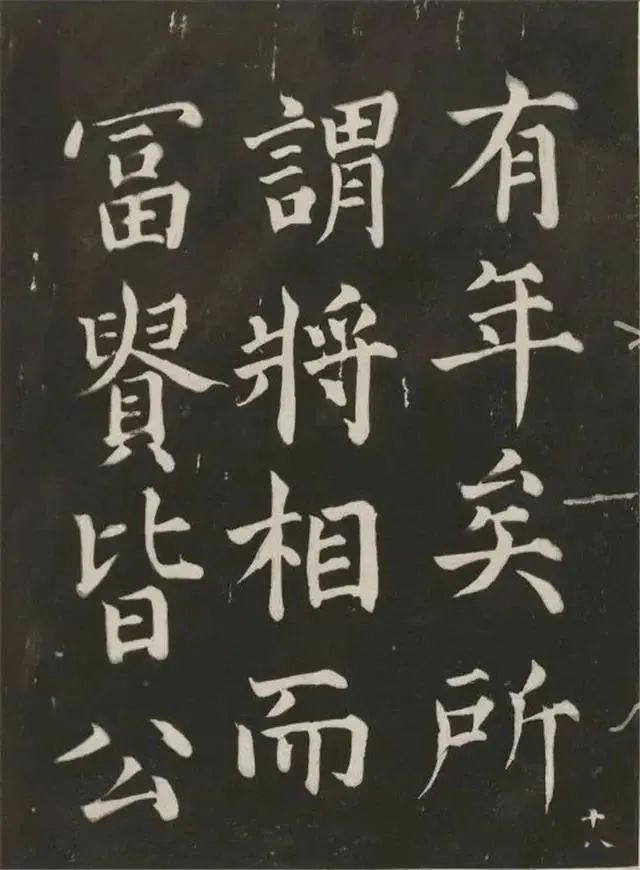 有年矣所
謂將相而
冨貴皆公
十八